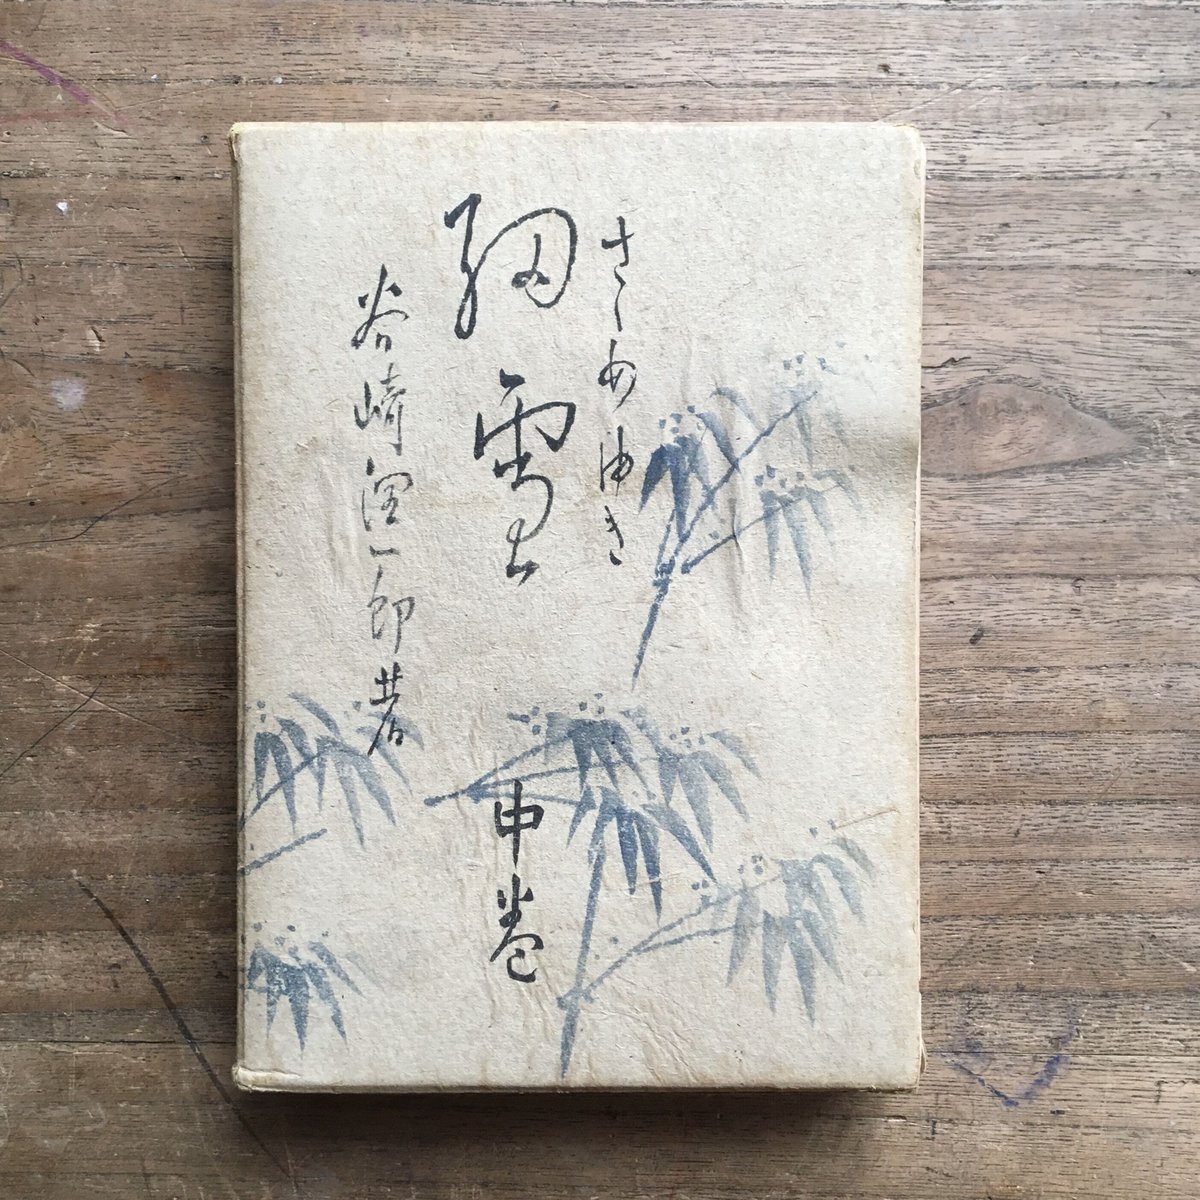 さゝめゆき
細雪
中巻
谷崎潤一郎著